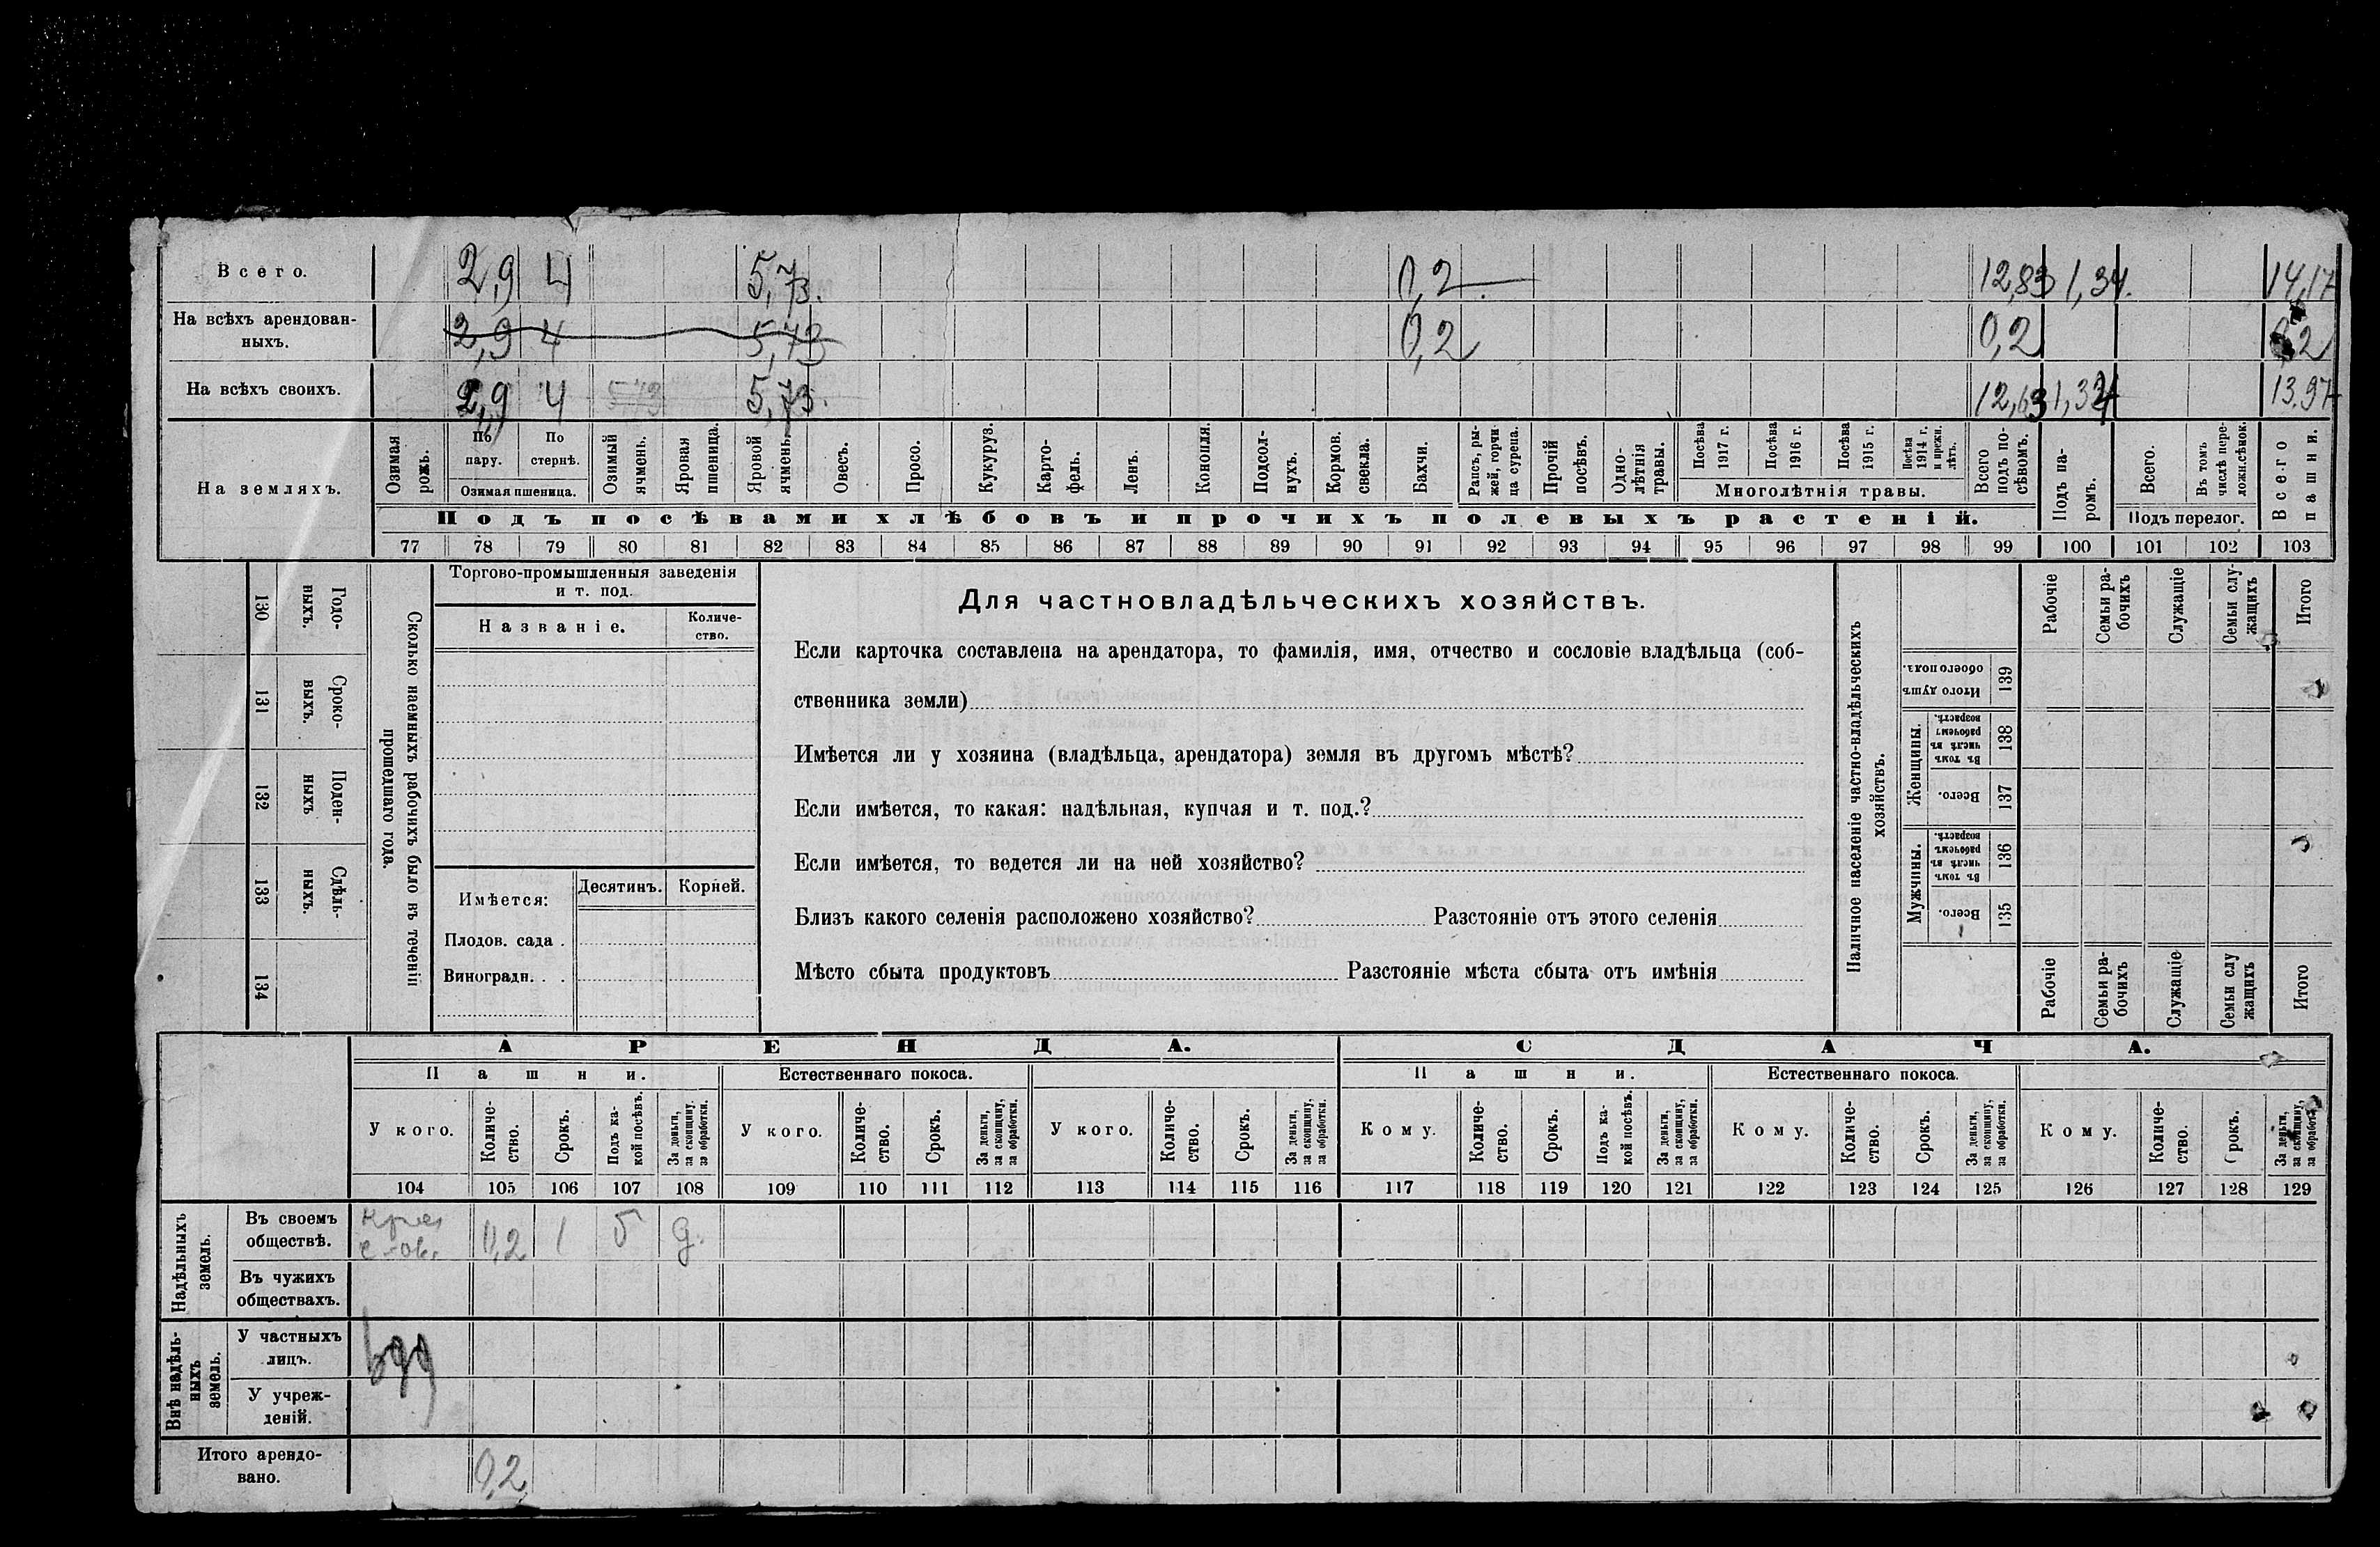 Всего. 2,9 4 5,73. 0,2 12,83 1,34. 14,17
На всѣхъ арендован- 2,9 4 5,73 0,2 0,2 0,2
ныхъ.
На всѣхъ своихъ. 2,9 4 5,73 5,73. 12,63 1,34 13.97
На земляхъ.
Озимая
рожь.
По
пару.
По
стернѣ.
Озимая пшеница.
Озимый
ячмень.
Яровая
пшеница.
Яровой
ячмень.
Овесъ.
Просо.
Кукуруз.
Карто-
фель.
Ленъ.
Конопля.
Подсол-
нухъ.
Кормов.
свекла.
Бахчи.
Рапсъ, ры-
жей, горчи-
ца сурепа.
Прочій
посѣвъ.
Одно-
лѣтнія
травы.
Посѣва
1917 г.
Посѣва
1916 г.
Посѣва
1915 г.
Посѣва
1914 г.
и прежн.
лѣтъ.
Многолѣтнія травы.
Всего
подъ по-
сѣвомъ.
Подъ па-
ромъ.
Всего.
Въ томъ
числѣ пере-
ложн.сѣнок.
Подъ перелог.
Всего
пашни.
Подъ посѣвами хлѣбовъ и прочихъ полевыхъ растеній.
77 78 79 80 81 82 83 84 85 86 87 88 89 90 91 92 93 94 95 96 97 98 99 100 101 102 103
130 Годо-
ныхъ.
131 Сроко-
выхъ.
132 Поден-
ныхъ
133 Сдѣль-
ныхъ.
134
Сколько наемныхъ рабочихъ было въ теченіи
прошедшаго года.
Торгово-промышленныя заведенія
и т. под.
Названіе.
Количе-
ство.
Имѣется:
Десятинъ. Корней.
Плодов. сада .
Виноградн. . .
Для частновладѣльческихъ хозяйствъ.
Если карточка составлена на арендатора, то фамилія, имя, отчество и сословіе владѣльца (соб-
ственника земли)
Имѣется ли у хозяина (владѣльца, арендатора) земля въ другомъ мѣстѣ?
Если имѣется, то какая: надѣльная, купчая и т. под.?
Если имѣется, то ведется ли на ней хозяйство?
Близъ какого селенія расположено хозяйство? Разстояніе отъ этого селенія
Мѣсто сбыта продуктовъ Разстояніе мѣста сбыта отъ имѣнія
Наличное населеніе частно-владѣльческихъ
хозяйствъ.
Рабочіе
Семьи ра-
бочихъ
Служащіе
Семьи слу-
жащихъ
Итого
Итого душъ
обоего пола.
139
Женщины.
Въ томъ
числѣ въ
рабочемъ
возрастѣ.
138
Всего.
137
Мужчины.
Въ томъ
числѣ въ
рабочемъ
возрастѣ.
136
Всего.
135
Рабочіе
Семьи ра-
бочихъ
Служащіе
Семьи слу
жащихъ
Итого
АРЕНДА. СДАЧА.
Пашни. Естественнаго покоса. Пашни. Естественнаго покоса.
У кого.
Количе-
ство.
Срокъ.
Подъ ка-
кой посѣвъ.
За деньги,
за скопщину,
за обработки.
У кого.
Количе-
ство.
Срокъ.
За деньги,
за скопщину,
за обработки.
У кого.
Количе-
ство.
Срокъ.
За деньги,
за скопщину,
за обработки.
Кому.
Количе-
ство.
Срокъ.
Подъ ка-
кой посѣвъ.
За деньги,
за скопщину,
за обработки.
Кому.
Количе-
ство.
Срокъ.
За деньги,
за скопщину,
за обработки.
Кому.
Количе-
ство.
Срокъ.
За деньги,
за скопщину,
за обработки.
104 105 106 107 108 109 110 111 112 113 114 115 116 117 118 119 120 121 122 123 124 125 126 127 128 129
Надѣльныхъ
земель.
Въ своемъ
обществѣ. 0,2 1 б д.
Въ чужихъ
обществахъ.
Внѣ надѣль-
ныхъ
земель.
У частныхъ
лицъ.
У учреж-
деній.
Итого арендо-
вано. 0,2